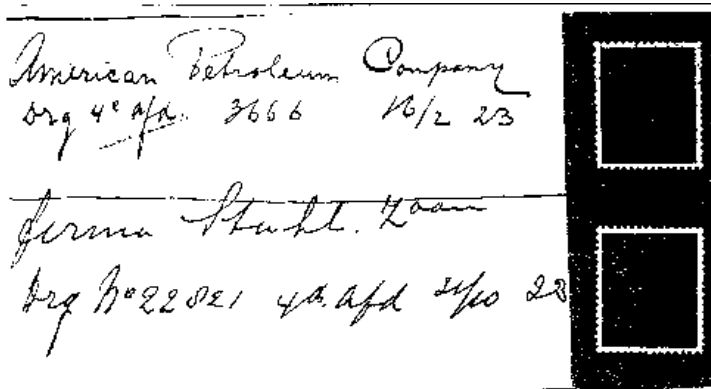 American Petroleum Company
Drg 4e afd. 3666 16/2 23
firma Stahl. Zoon
Drg No 22821 4de afd 31/10 23